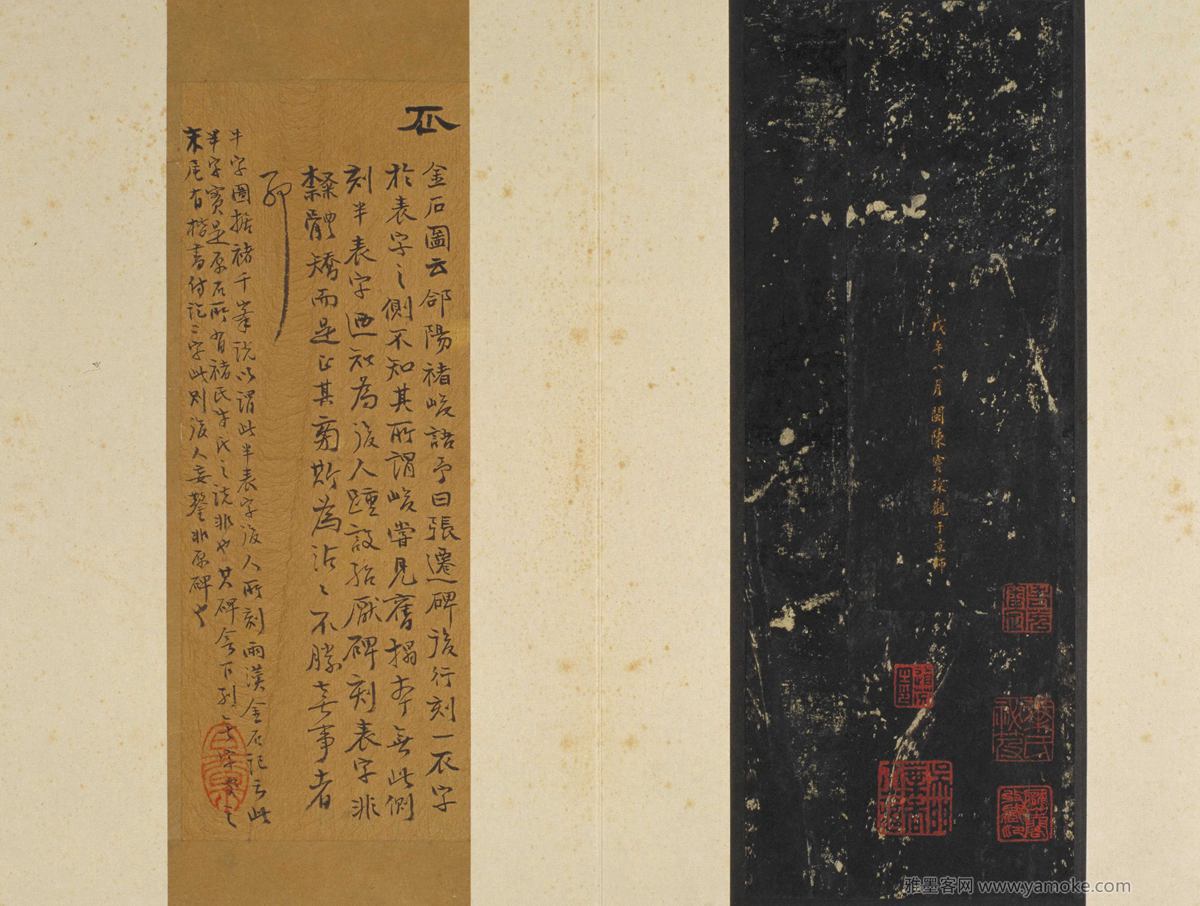 戊午八月閩陳寶琛觀于京師
金石圖云郃陽褚峻語予曰張遷碑後行刻一衣字
於表字之側不知其所謂峻嘗見舊搨本無此側
刻半表字迺知為後人踵設殆厭碑刻表字非
隸體矯而是正其剪斯為沾沾不勝喜事者
耶
半字圖据褚千峯說以謂此半表字後人所刻兩漢金石記云此
半字實是原石所有褚氏牛氏之說非也其碑合下列
末尾有楷書付訖二字此則後人妄鑿非原碑也
雅墨客网 www.yamoke.com